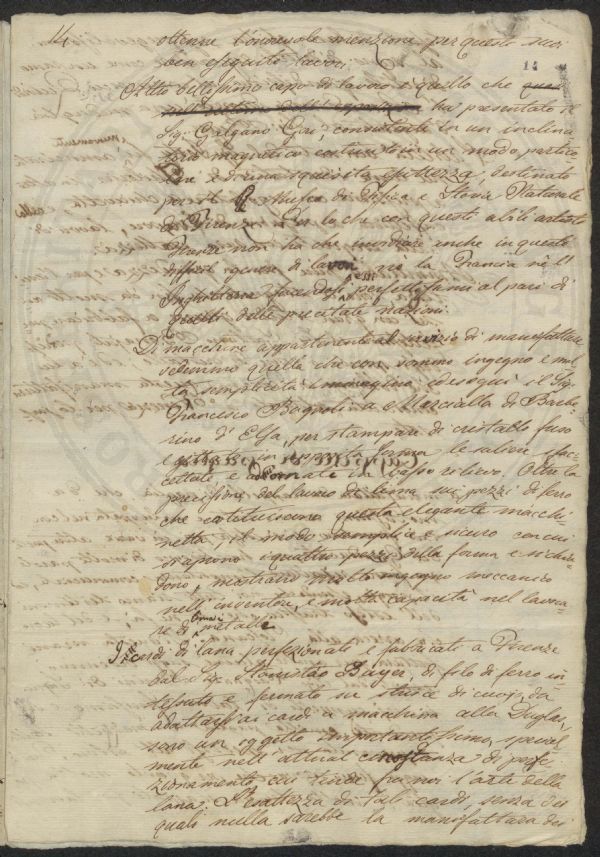 14
ottenne l'onorevole menzione per questi suoi
ben eseguiti lavori.
14
Altro bellissimo capo di lavoro è quello che
ha presentato il
Sig. Galgano Gori, consistente in un inclina
torio magnetico costruito in un modo partico
lare e d'una squisita esattezza, destinato
per il R. Museo di Fisica e Storia Naturale
di Firenze. Per lo che con questi abili artisti
Firenze non ha che invidiare anche in questo
difficil genere di lavori nè la Francia nè l'
Inghilterra
quelli delle precitate nazioni.
Di macchine appartenenti al servizio di manifatture
vedemmo quella che con sommo ingegno e mol
ta semplicità immaginò ed eseguì il Sig.
Francesco Bagnoli a Marcialla di Barbe
rino d'Elsa, per stampare di cristallo fuso
le saliere sfac
cettate e adornate in basso rilievo. Oltre la
precisione del lavoro di lima sui pezzi di ferro
che costituiscono questa elegante macchi
netta, il modo semplice e sicuro con cui
si aprono i quattro pezzi della forma e si chiu
dono, mostrano molto ingegno meccanico
nell'inventore, e molta capacità nel lavora
re di metalli.
I cardi di lana perfezionati e fabbricati a Firenze
dal Sig. Stanislao Bayer, di filo di ferro in
tessuto e fermato su strisce di cuojo, da
adattarsi ai cardi a macchina alla Duglas,
sono un oggetto importantissimo, special
mente nell'attual circostanza di perfe
zionamento cui tende fra noi l'arte della
lana. L'esattezza di tali cardi, senza dei
quali nulla sarebbe la manifattura dei